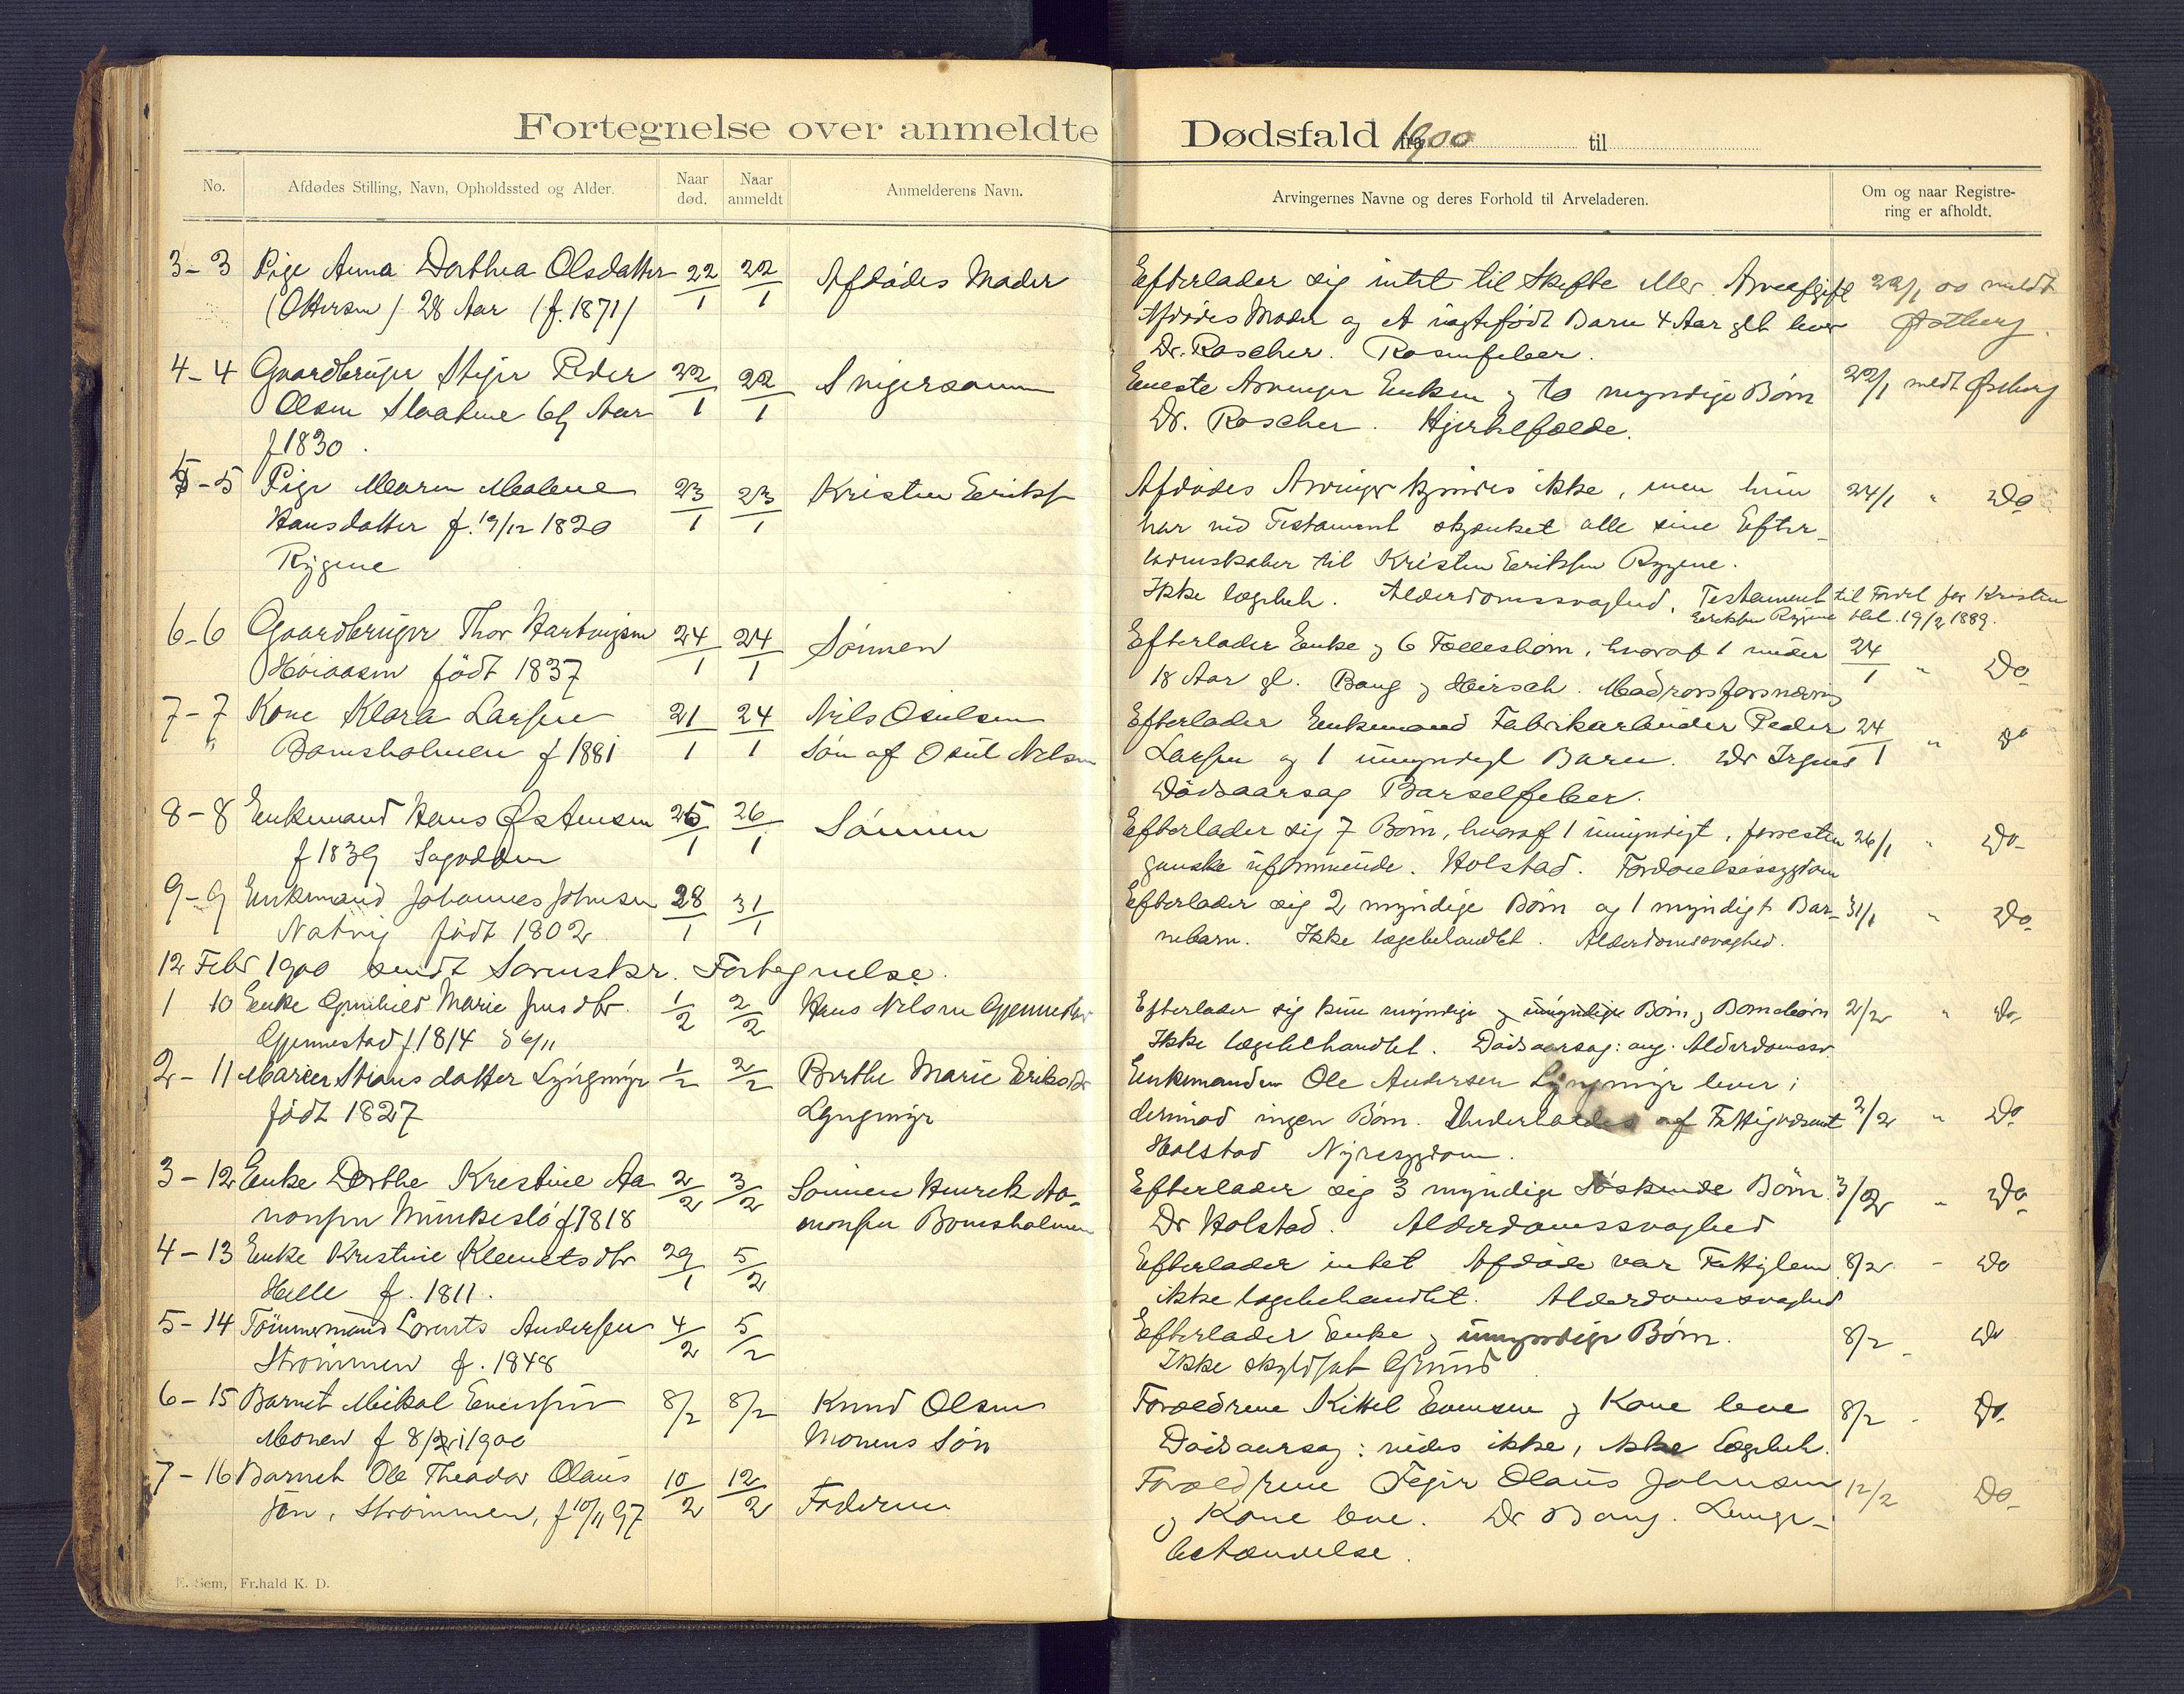 Fortegnelse over anmeldte Dødsfald fra 1900 til
No. Afdødes Stilling, Navn, Opholdssted og Alder. Naar død. Naar anmeldt Anmelderens Navn. Arvingernes Navne og deres Forhold til Arveladeren. Om og naar Registrering er afholdt.
3-3 Pige Anna Dorthea Olsdatter 22/1 22/1 Afdødes Moder Efterlader sig intet til Skifte eller Arveafgift 22/1 00 meldt
(Ottersen) 28 Aar (f. 1871) Afdødes Moder og et uægtefødt Barn 4 Aar glt lever Østberg.
Dr. Roscher. Rosenfeber.
4-4 Gaardbruger Skiper Peder 22/1 22/1 Svigersønn Eneste Arvinger Enken og to myndige Børn 22/1 meldt Østberg
Olsen 69 Aar Dr. Roscher. Hjerteslagfælde.
f 1830.
5-5 Pige Maren Malene 23/1 23/1 Kristen Eriksf Afdødes Arvinger kjendes ikke, men hun 24/1 " Do
Hansdatter f. 19/12 1820 har ved Testament skjænket alle sine Efter-
Rygene ladenskaber til Kristen Eriksen Rygene.
Ikke lægebeh. Alderdomssvaghed. Testament til Fordel for Kristen
Eriksen Rygene dat. 19/2 1889.
6-6 Gaardbruger Thor Hartvigsen 24/1 24/1 Sønnen Efterlader Enke og 6 Fællesbørn, hvoraf 1 under 24/1 " Do
født 1837 18 Aar gl. Bang og Hirsch.
7-7 Kone Klara Larsen 21/1 24/1 Nils Osulsen Efterlader Enkemand Fabrikarbeider Peder 24/1 " do
" Bomsholmen f 1881 Søn af Osul Nilsen Larsen og 1 umyndigt Barn. Dr Irgens
Dødsaarsag Barselfeber.
8-8 Enkemand Hans Østensen 26/1 26/1 Sønnen Efterlader sig 7 Børn, hvoraf 1 umyndigt, forresten 26/1 " Do-
f 1839 Sagodden ganske uformuende. Holstad. Fordøielsessygdom
9-9 Enkemand Johannes Johnsen 28/1 31/1 Efterlader sig 2 myndige Børn og 1 myndigt Bar- 31/1 " Do-
Natvig født 1802 nebarn. Ikke lægebehandlet. Alderdomssvaghed.
12 Febr 1900 sendt Sorenskr. Fortegnelse.
1 10 Enke Gunhild Marie Jensdtr 1/2 2/2 Hans Nilsen Gjennestad Efterlader sig kun myndige og umyndige Børn og Børnebørn 2/2 " do-
Gjennestad f. 1814 Ikke lægebehandlet. Dødsaarsag: ang. Alderdomssv.
2-11 Maren Stiansdatter Lyngmyr 1/2 2/2 Berthe Marie Eriksdr Enkemanden Ole Andersen Lyngmyr lever;
født 1827 Lyngmyr derimod ingen Børn. Underholdes af Fattigvæsenet 2/2 " Do
Holstad Nyresygdom.
3-12 Enke Dorthe Kristine Aa- 2/2 3/2 Sønnen Henrik Aa- Efterlader sig 3 myndige Søskende Børn. 3/2 " Do
nonsen Munkeslø f 1818 nonsen Bomsholmen Dr Holstad. Alderdomssvaghed
4-13 Enke Kristine Klemetsdtr 29/1 5/2 Efterlader intet Afdøde var Fattiglem. 8/2 - Do
Helle f. 1811. ikke lægebehandlet. Alderdomssvaghed
5-14 Tømmermand Lorents Andersen 4/2 5/2 Efterlader Enke og umyndige Børn. 8/2 - Do
Strømmen f. 1848 Ikke skyldsat Grund
6-15 Barnet Mikal Evensen 8/2 8/2 Knud Olsen Forældrene Kittel Evensen og Kone leve 8/2 - Do
Moner f 8/2 1900 Moners Søn Dødsaarsag: vides ikke, ikke lægebeh.
7-16 Barnet Ole Theodor Olaus 10/2 12/2 Faderen Forældrene Olaus Johnsen 12/2 Do-
søn, Strømmen, f 10/11 97 og Kone leve. Dr Bang. Lunge-
betændelse.
E. Sem, Fr.hald K. D.